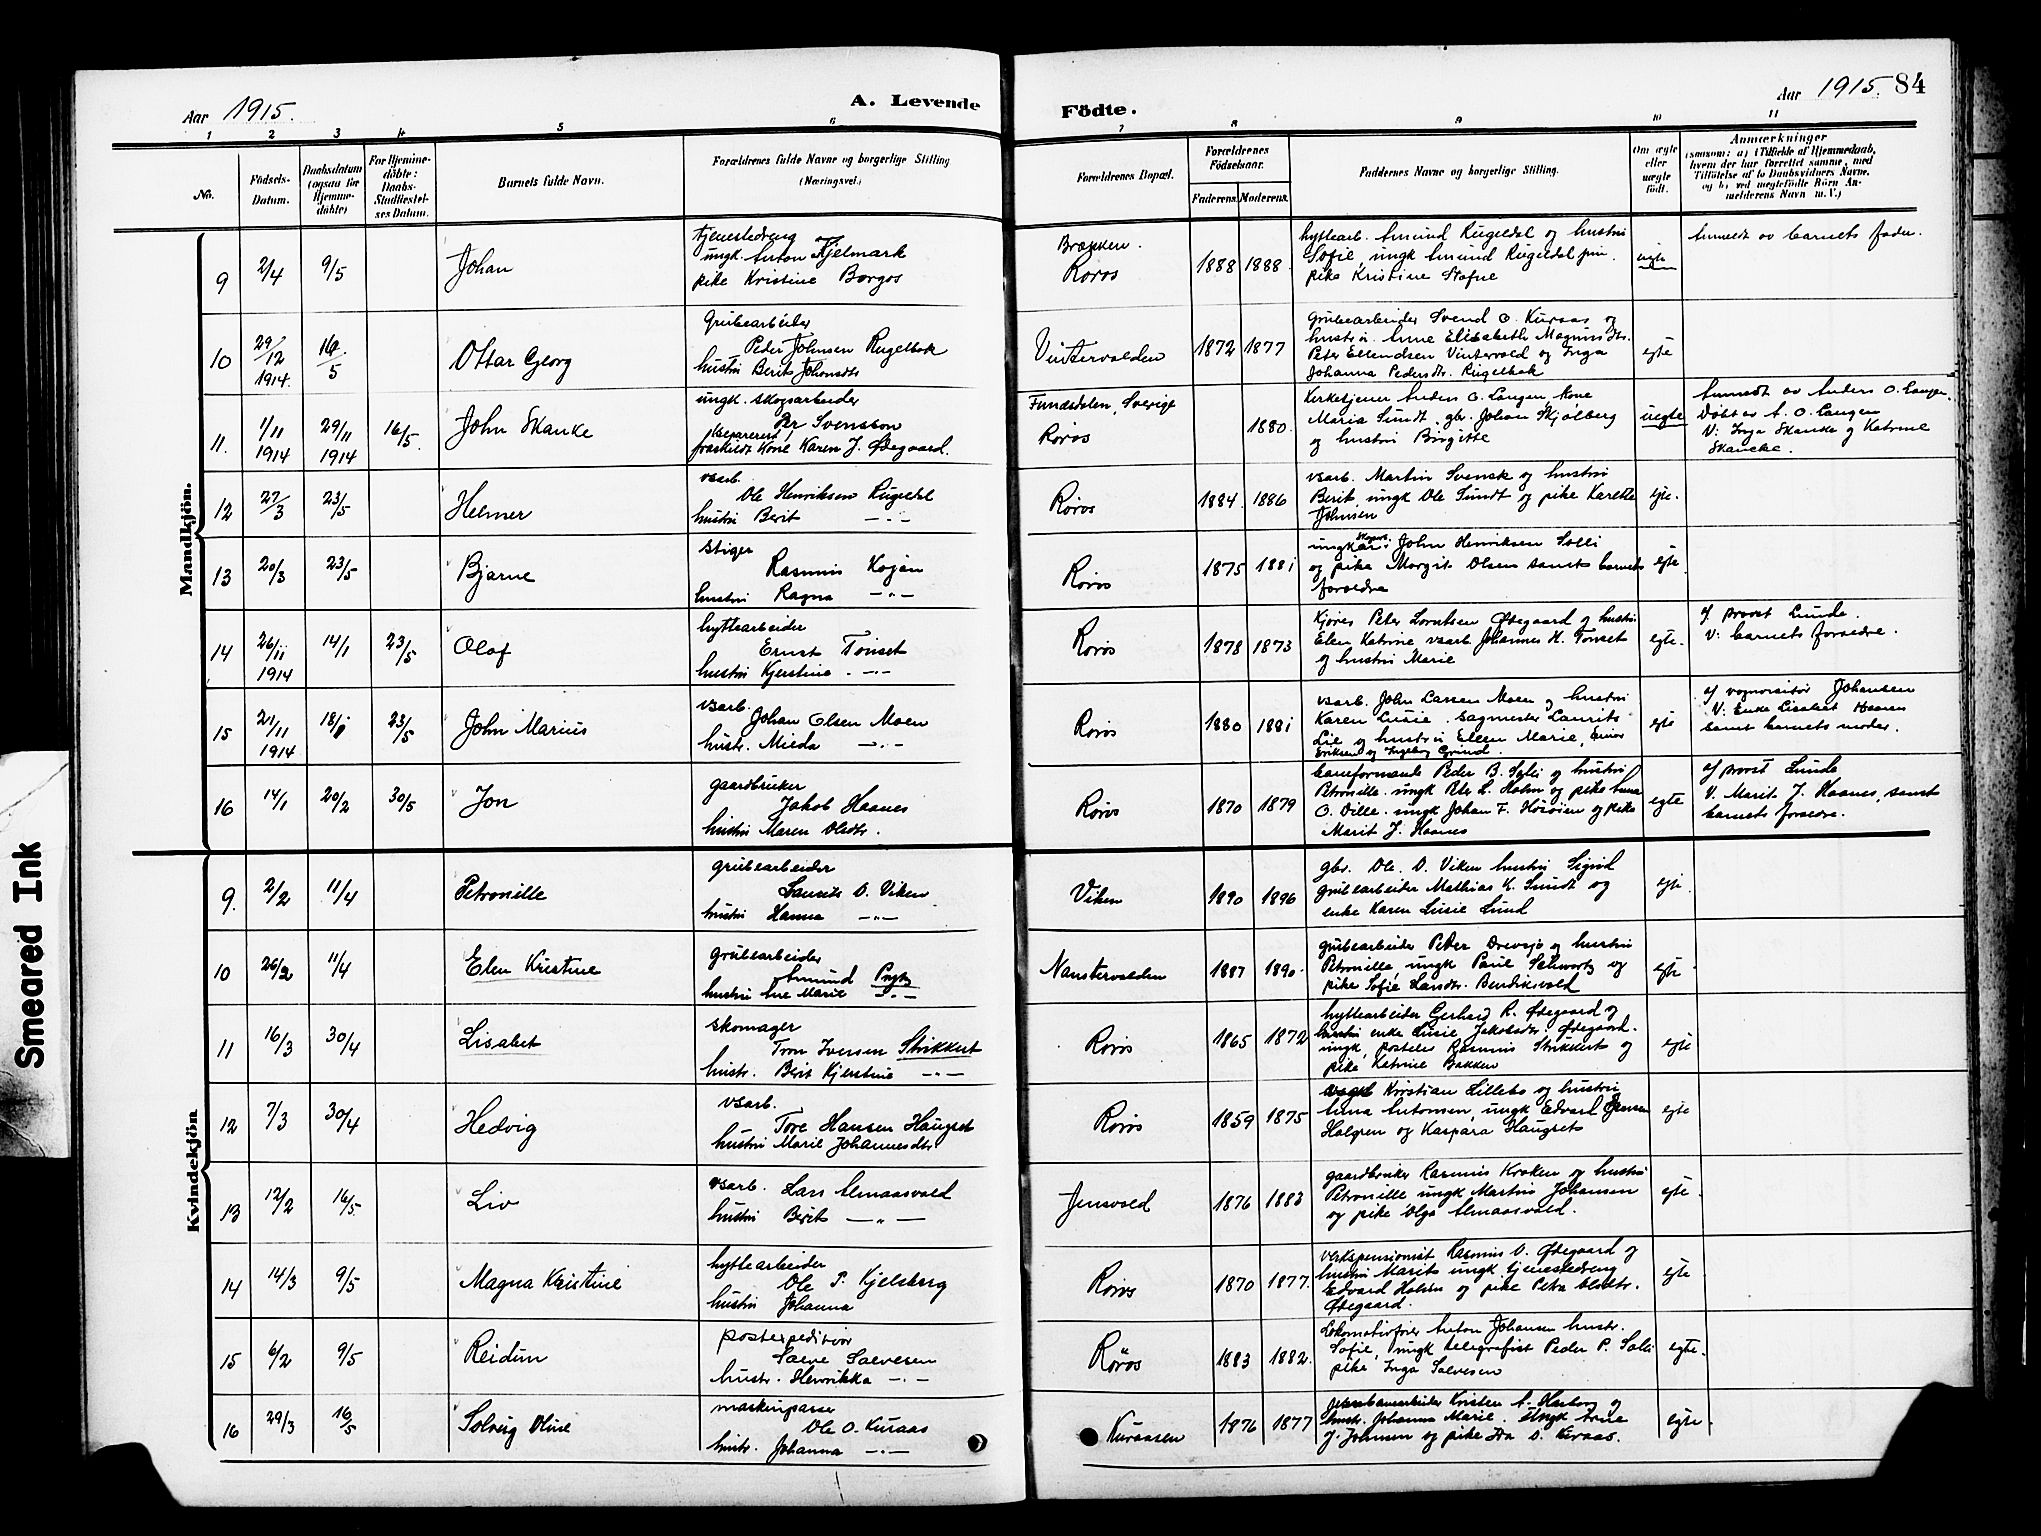 Aar 1915.
A. Levende
Födte.
Aar 1915. 84
1 2 3 4 5 6 7 8 9 10 11
No.
Födsels-
Datum.
Daabsdatum
(ogsaa for
Hjemme-
döbte)
For Hjemme-
döbte:
Daabs-
Stadfæstel-
ses Datum.
Barnets fulde Navn.
Forældrenes fulde Navne og borgerlige Stilling
(Næringsvei.)
Forældrenes Bopæl.
Forældrenes
Födselsaar.
Faderens. Moderens.
Faddernes Navne og borgerlige Stilling.
Om ægte
eller
uægte
födt.
Anmærkninger
(saasom: a) i Tilfælde af Hjemmedaab,
hvem der har forrettet samme, med
Tilföielse af to Daabsvidners Navne,
og b) ved uægtefödte Börn An-
melderens Navn m. V.)
Mandkjön.
9 2/4 9/5 Johan
tjenestedreng
ungk. Anton Kjelmark
pike Kristine Borgos
Brekken.
Røros
1888 1888.
hyttearb. Amund Rugeldal og hustru
Sofie, ungk Amund Rugeldal jun.
pike Kristine Stefne
uegte
Anmeldt av barnets fader.
10 29/12 1914. 16/5 Ottar Georg
Grubearbeider
Peder Johnsen Rugelbak
hustru Berit Johansdtr
Vintervolden
1872 1877
Grubearbeider Svend O. Kuraas og
hustru Anne Elisabeth Magnusdtr.
Peter Ellendsen Vintervold og Inga
Johanna Pedersdtr. Rugelbak
egte
11. 1/11 1914 29/11 1914 16/5. John Skanke
ungk. skogsarbeider
Per Svensson
separeret
fraskildt Kone Karen J. Ødegaard.
Funesdalen, Sverige
Røros
1880.
Kirketjener Anders O. Langen, Kone
Maria Sundt, gbr. Johan Skjølberg
og hustru Birgitte
uegte
Anmeldt av Anders O. Langen.
Døbt av A. O. Langen
V: Inga Skancke og Katrine
Skancke.
12 27/3 23/5 Helmer
vsarb.
Ole Henriksen Rugeldal
hustru Berit —"—
Røros
1884 1886
vsarb. Martin Svensk og hustru
Berit ungk Ole Sundt og pike Karette
Johnsen
egte.
13 20/3 23/5 Bjarne
stiger
Rasmus Kojan
hustru Ragna —"—
Røros
1875 1881
ungkar John Henriksen Solli
og pike Margit Olsen samt barnets
foreldre
egte.
14 26/11 1914 14/1 23/5 Olaf
hyttearbeider
Ernst Tønset
hustru Kjerstine —"—
Røros
1878 1873
Kjører Peter Lorntsen Ødegaard og hustru
Elen Katrine vsarb Johannes H. Tønset
og hustru Marie
egte.
af provst Lunde.
V: barnets foreldre.
15 21/11 1914 18/1 23/5 John Marius
vsarb.
Johan Olsen Moen
hustr. Milda —"—
Røros
1880 1881
vsarb. John Larsen Moen og hustru
Karen Lusie. sagmester Laurits
Lie og hustru Ellen Marie,
Eriksen og Ingeborg Grind.
egte
af vognvisitør Johansen
V: Enke Lisabet Haanes
samt barnets moder.
16 14/1 20/2 30/5 Jon
gaardbruker
Jakob Haanes
hustru Maren Olsdtr.
Røros
1870 1879
baneformand Peder B. Solli og hustru
Petronille. ungk Peter L. Holm og pike Anna
O. Dille. ungk Johan F. Hosøien og pike
Marit J. Haanes
egte
af provst Lunde
V. Marit J. Haanes, samt
barnets foreldre.
Kvindekjön.
9. 2/2 11/4 Petronille
grubearbeider
Laurits O. Viken
hustru Hanna —"—
Viken
1890 1896
gbr. Ole O. Viken hustru Sigrid
grubearbeider Mathias K. Sundt og
enke Karen Lusie Lund
egte.
10 26/2 11/4 Elen Kristine
grubearbeider
Amund Prytz
hustru Ane Marie —"—
Nanstervolden
1887 1890.
grubearbeider Peter Drevsjø og hustru
Petronille, ungk Paul Schwartz og
pike Sofie Larsdtr. Bendiksvold
egte
11 16/3 30/4 Lisabet
skomager
Tron Iversen Strikkert
hustr. Berit Kjerstine —"—
Røros
1865 1872
hyttearbeider Gerhard R. Ødegaard og
hustru enke Lusie Jakobsdtr. Ødegaard.
ungk. postele Rasmus Strikkert og
pike Katrine Bakken
egte
12 7/3 30/4 Hedvig
vsarb.
Tore Hansen Haugset
hustru Marie Johannesdtr
Røros
1859 1875
Kristian Lillebo og hustru
Anna Antonsen, ungk Edvard Jensen
Halgren og Kaspara Haugset
egte
13 12/2 16/5. Liv
vsarb. Lars Almaasvold
hustru Berit —"—
Jensvold
1876 1883
gaardbruker Rasmus Kroken og hustru
Petronille ungk Martin Johansen
og pike Olga Almaasvold.
egte.
14 14/3 9/5 Magna Kristine
hyttearbeider
Ole P. Kjelsberg
hustru Johanna
Røros
1870 1877.
verkspensionist Rasmus O. Ødegaard og
hustru Marit ungk tjenestedreng
Edvard Holm og pike Petra Olsdtr.
Ødegaard.
egte
15 6/2 9/5 Reidun
postexpeditør
Salve Salvesen
hustr. Henrikka —"—
Røros
1883 1882.
Lokomotivfører Anton Johansen hustr.
Sofie, ungk telegrafist Peder P. Solli
pike Inga Salvesen
egte.
16 29/3 16/5 Solveig Oline
maskinpasser
Ole O. Kuraas
hustr. Johanna —"—
Kuraasen
1876 1877
jernbanearbeider Kristen A. Harborg og
hustr. Johanna Marie. Ungk Arne
J. Johnsen og pike Ida O. Kuraas.
egte.
Smeared Ink